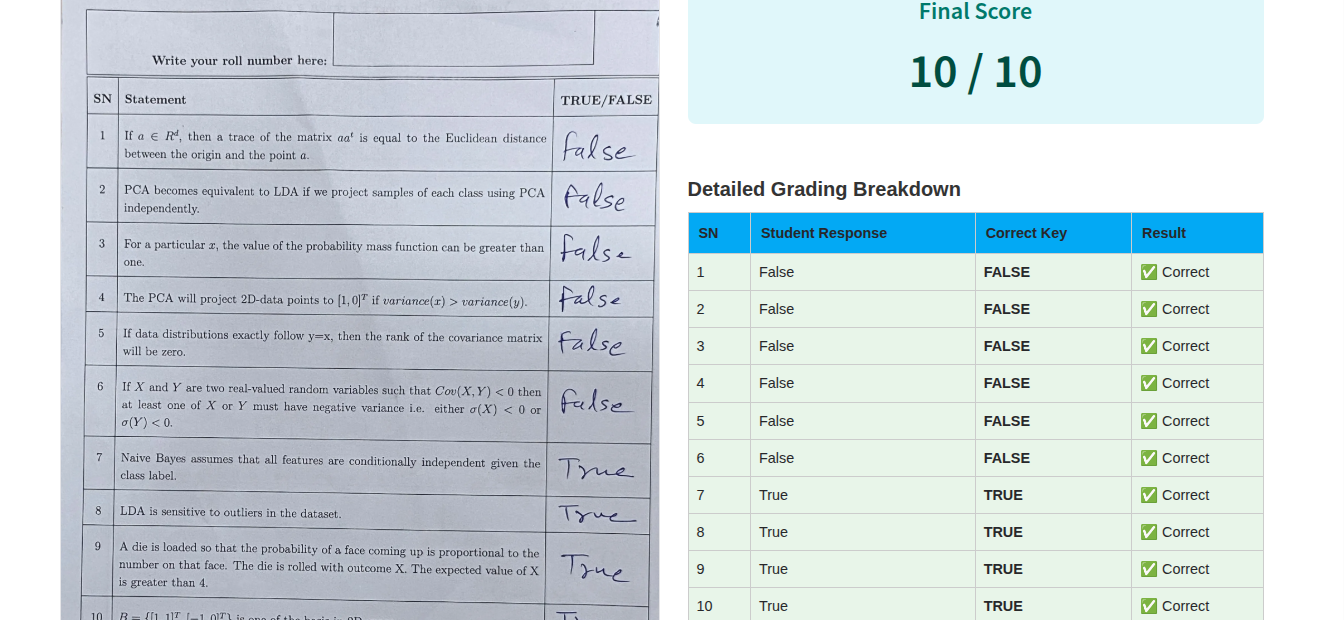 Final Score
10 / 10
Write your roll number here:
SN Statement TRUE/FALSE
1 If a ∈ R^d, then a trace of the matrix aa^t is equal to the Euclidean distance
between the origin and the point a.
False
2 PCA becomes equivalent to LDA if we project samples of each class using PCA
independently.
False
3 For a particular x, the value of the probability mass function can be greater than
one.
False
4 The PCA will project 2D-data points to [1, 0]^T if variance(x) > variance(y).
False
5 If data distributions exactly follow y=x, then the rank of the covariance matrix
will be zero.
False
6 If X and Y are two real-valued random variables such that Cov(X, Y) < 0 then
at least one of X or Y must have negative variance i.e. either σ(X) < 0 or
σ(Y) < 0.
False
7 Naive Bayes assumes that all features are conditionally independent given the
class label.
True
8 LDA is sensitive to outliers in the dataset.
True
9 A die is loaded so that the probability of a face coming up is proportional to the
number on that face. The die is rolled with outcome X. The expected value of X
is greater than 4.
True
10
Detailed Grading Breakdown
SN Student Response Correct Key Result
1 False FALSE ✅ Correct
2 False FALSE ✅ Correct
3 False FALSE ✅ Correct
4 False FALSE ✅ Correct
5 False FALSE ✅ Correct
6 False FALSE ✅ Correct
7 True TRUE ✅ Correct
8 True TRUE ✅ Correct
9 True TRUE ✅ Correct
10 True TRUE ✅ Correct